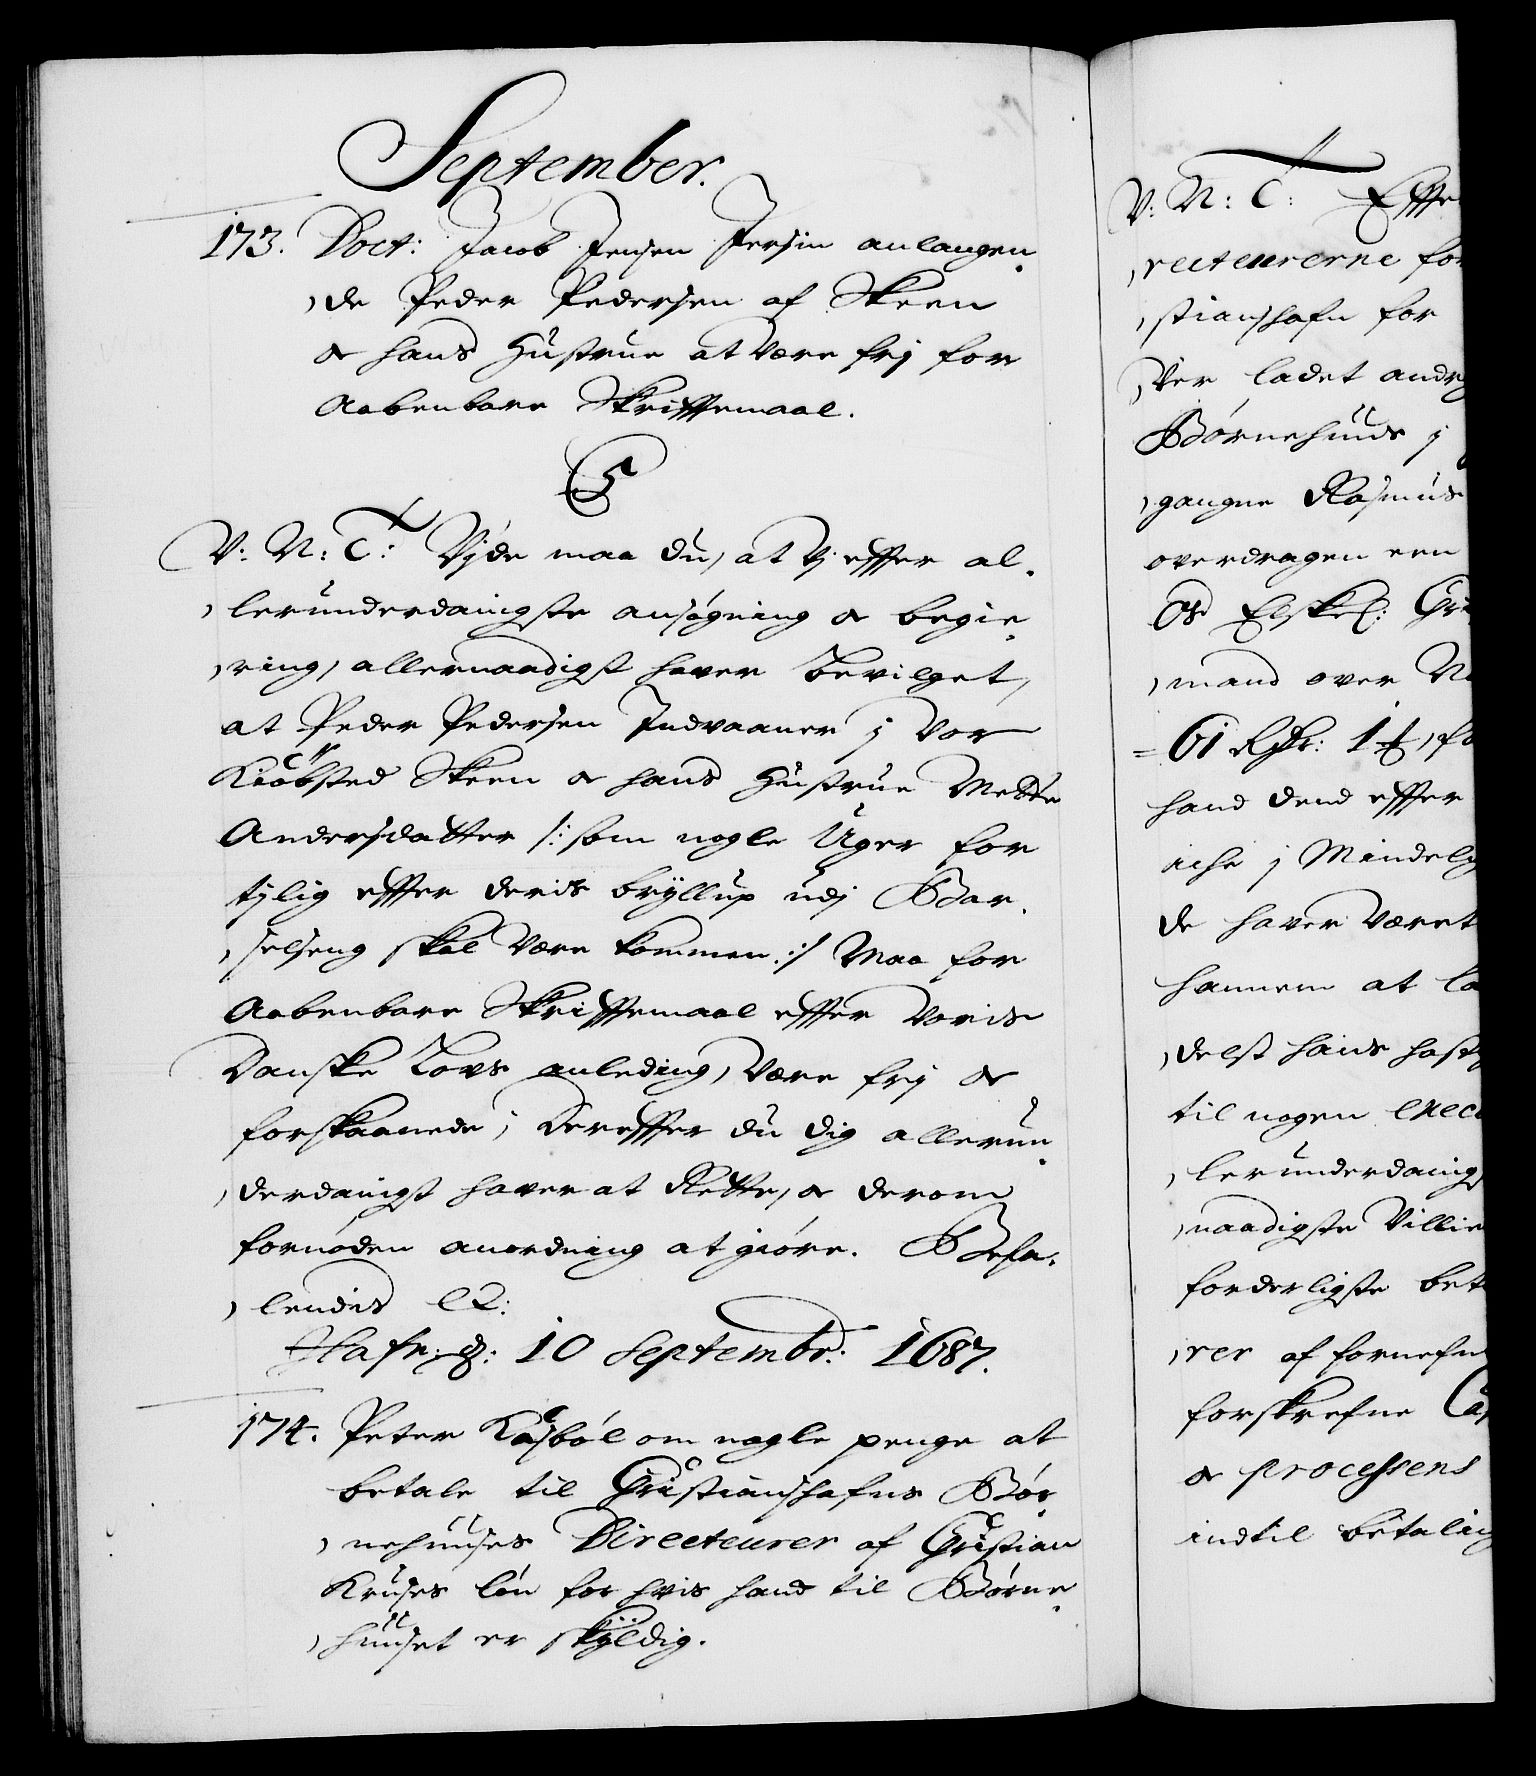 September.
173. Doct: Jacob Jensen Jersin anlangen-
de Peder Pedersen af Skeen
oc hans Hustrue at være frj for
Aabenbare Skrifftemaal.
C5
V: N: T: Vjde maa du, at Vj effter al-
lerunderdanigste ansøgning oc begie-
ring, allernaadigst haver Bevilget,
at Peder Pedersen Indvaaner j Vor
Kiøbsted Skeen oc hans Hustrue Mette
Andersdatter /: som nogle Uger for
tjlig effter deris bryllup udj Bar-
selseng skal være kommen :/ Maa for
Aabenbare Skrifftemaal effter Voris
Danske Lovs anleding, være frj oc
forskaanede; Dereffter du dig allerun-
derdanigst haver at Rette, oc derom
fornøden anordning at giøre. Befa-
lendis etc:
Hafn: d: 10 Septembr: 1687.
174. Peter Kasbøl om nogle penge at
betale til Christianshafns Bør-
nehuuses Directeurer af Christian
Kruses løn for hvis hand til Børne-
huuset er skÿldig.
V: N: T: Effte
recteurerne for
stianshafn for
Ver ladet andr
Børnehuus j
gangne Rasmus
overdragen een
Os Elskel: Chri
mand over N
61 Rdr: 1 fo
hand dend effter
iche j Mindelig
de haver været
hannem at la
delst hans hast
til nogen exec
lerunderdanigs
naadigste Villie
forderligste bet
rer af fornefn
forskrefne Ca
oc processens
indtil betaling